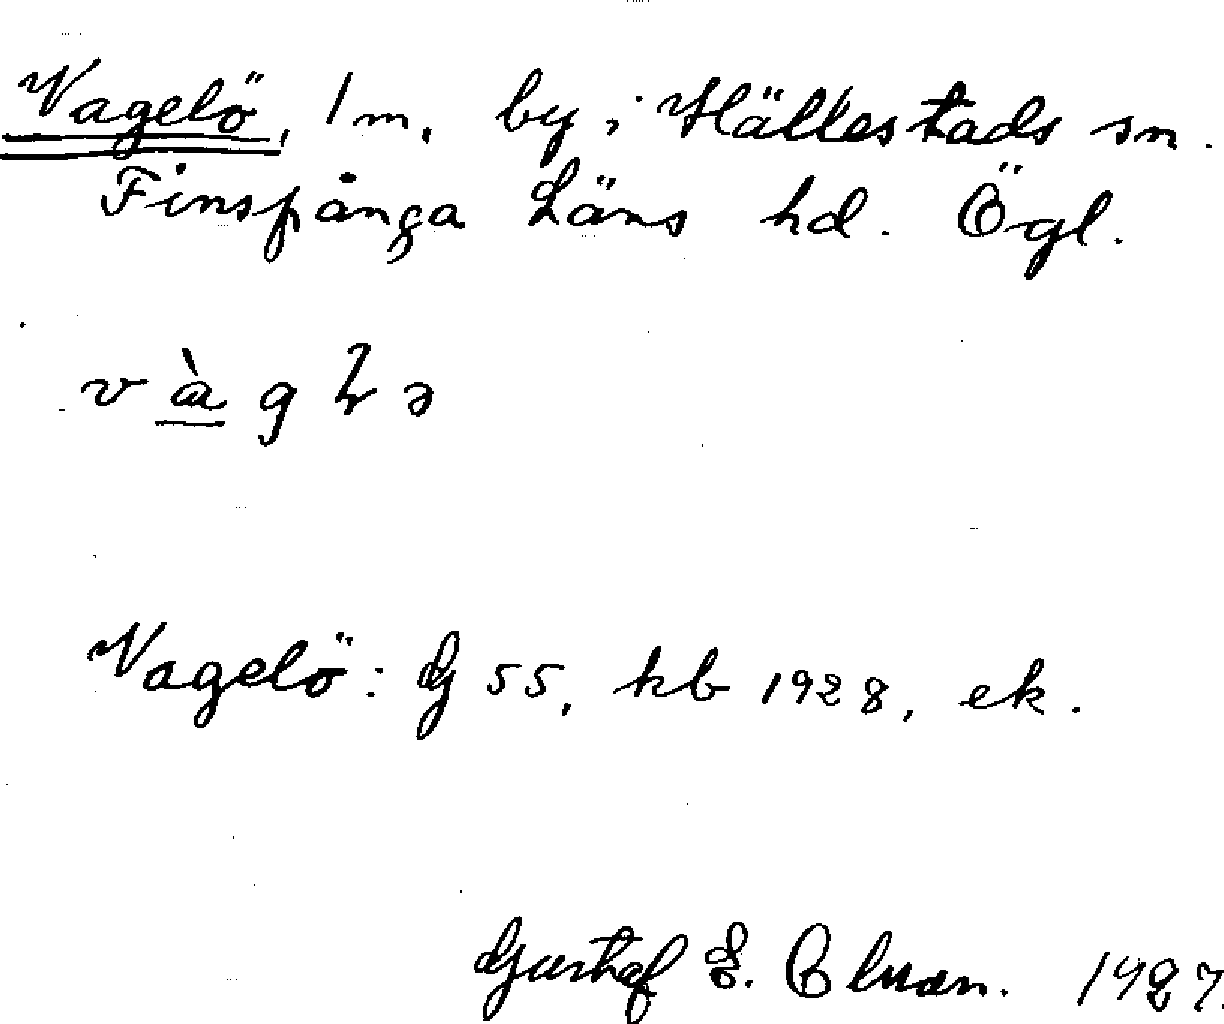 Vagelö, 1 m, by i Hällestads sn.
Finspånga Läns hd. Ögl.
Vagelö: G 55, kb 1928, ek.
Gustaf E. 1927.